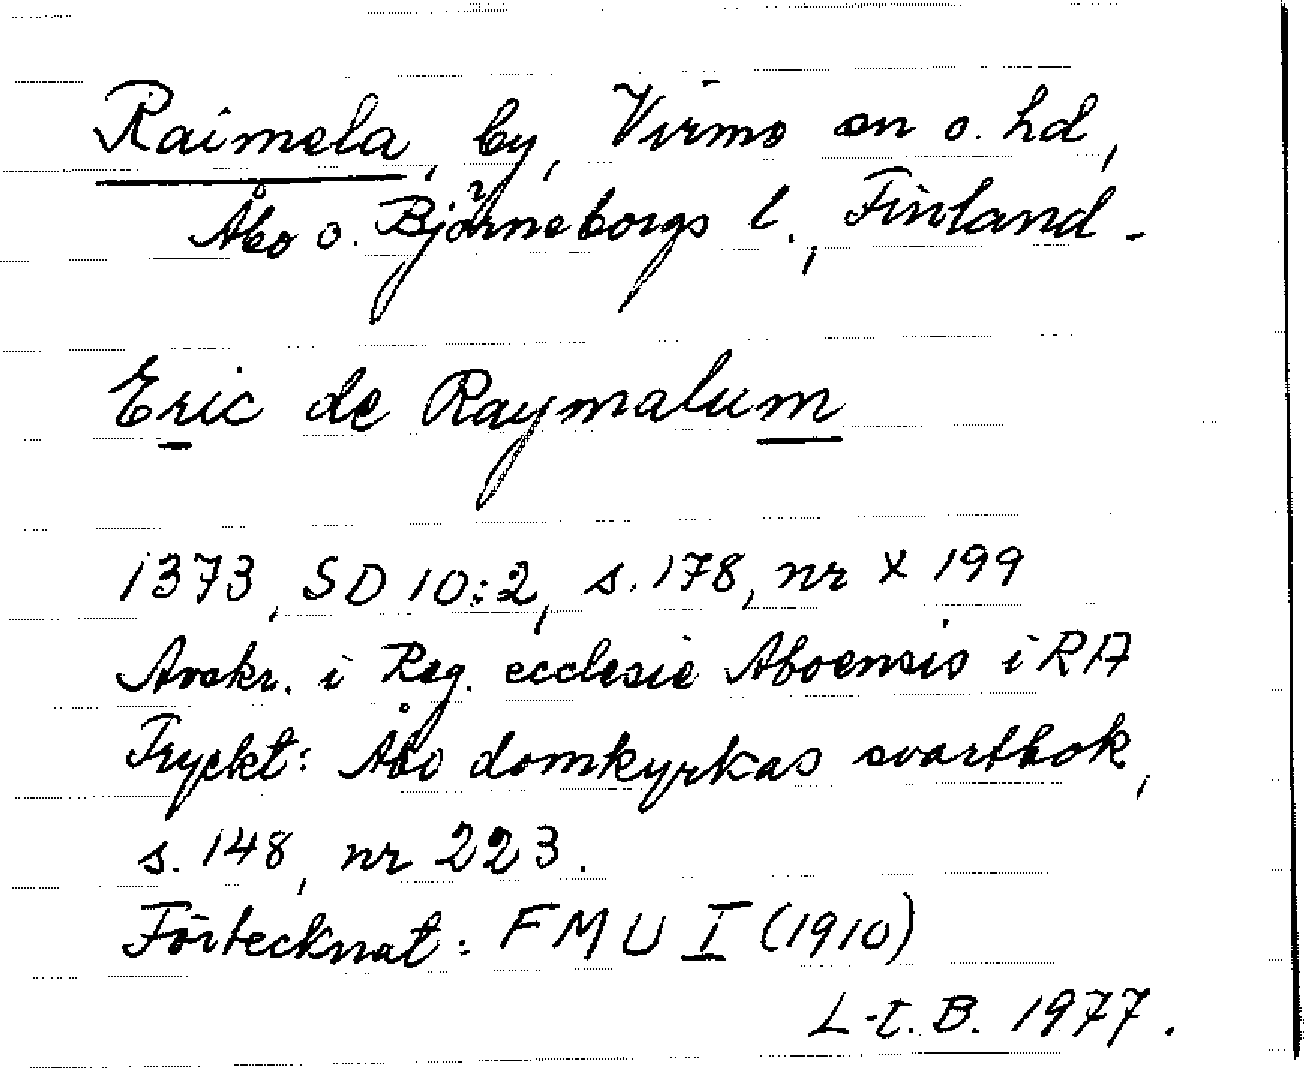 Raimela, by, Virmo sn o. hd,
Åbo o. Björneborgs l., Finland.
Eric de Raymalum
1373, SD 10:2, s. 178, nr X 199
Avskr. i Reg. ecclesie Aboensis i RA
Tryckt: Åbo domkyrkas svartbok,
s. 148, nr 223.
Förtecknat: FMU I (1910)
L-I. B. 1977.